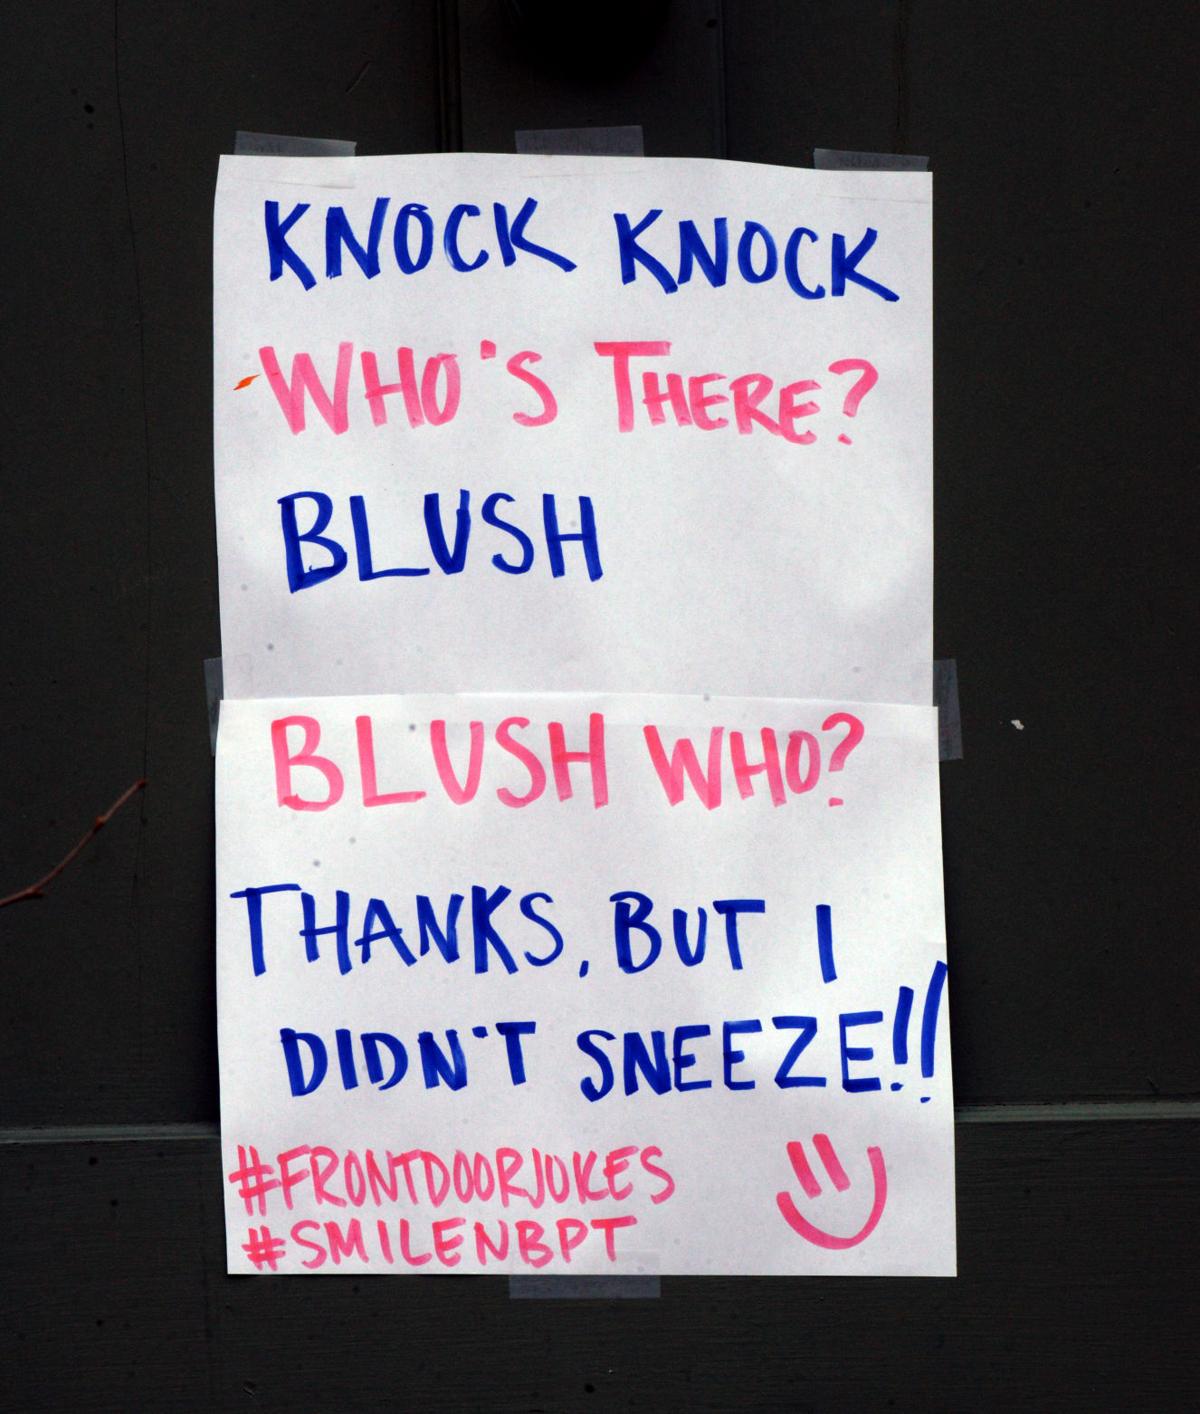 KNOCK KNOCK
WHO'S THERE?
BLUSH
BLUSH WHO?
THANKS, BUT I
DIDN'T SNEEZE!!
#FRONTDOORJOKES
#SMILENBPT